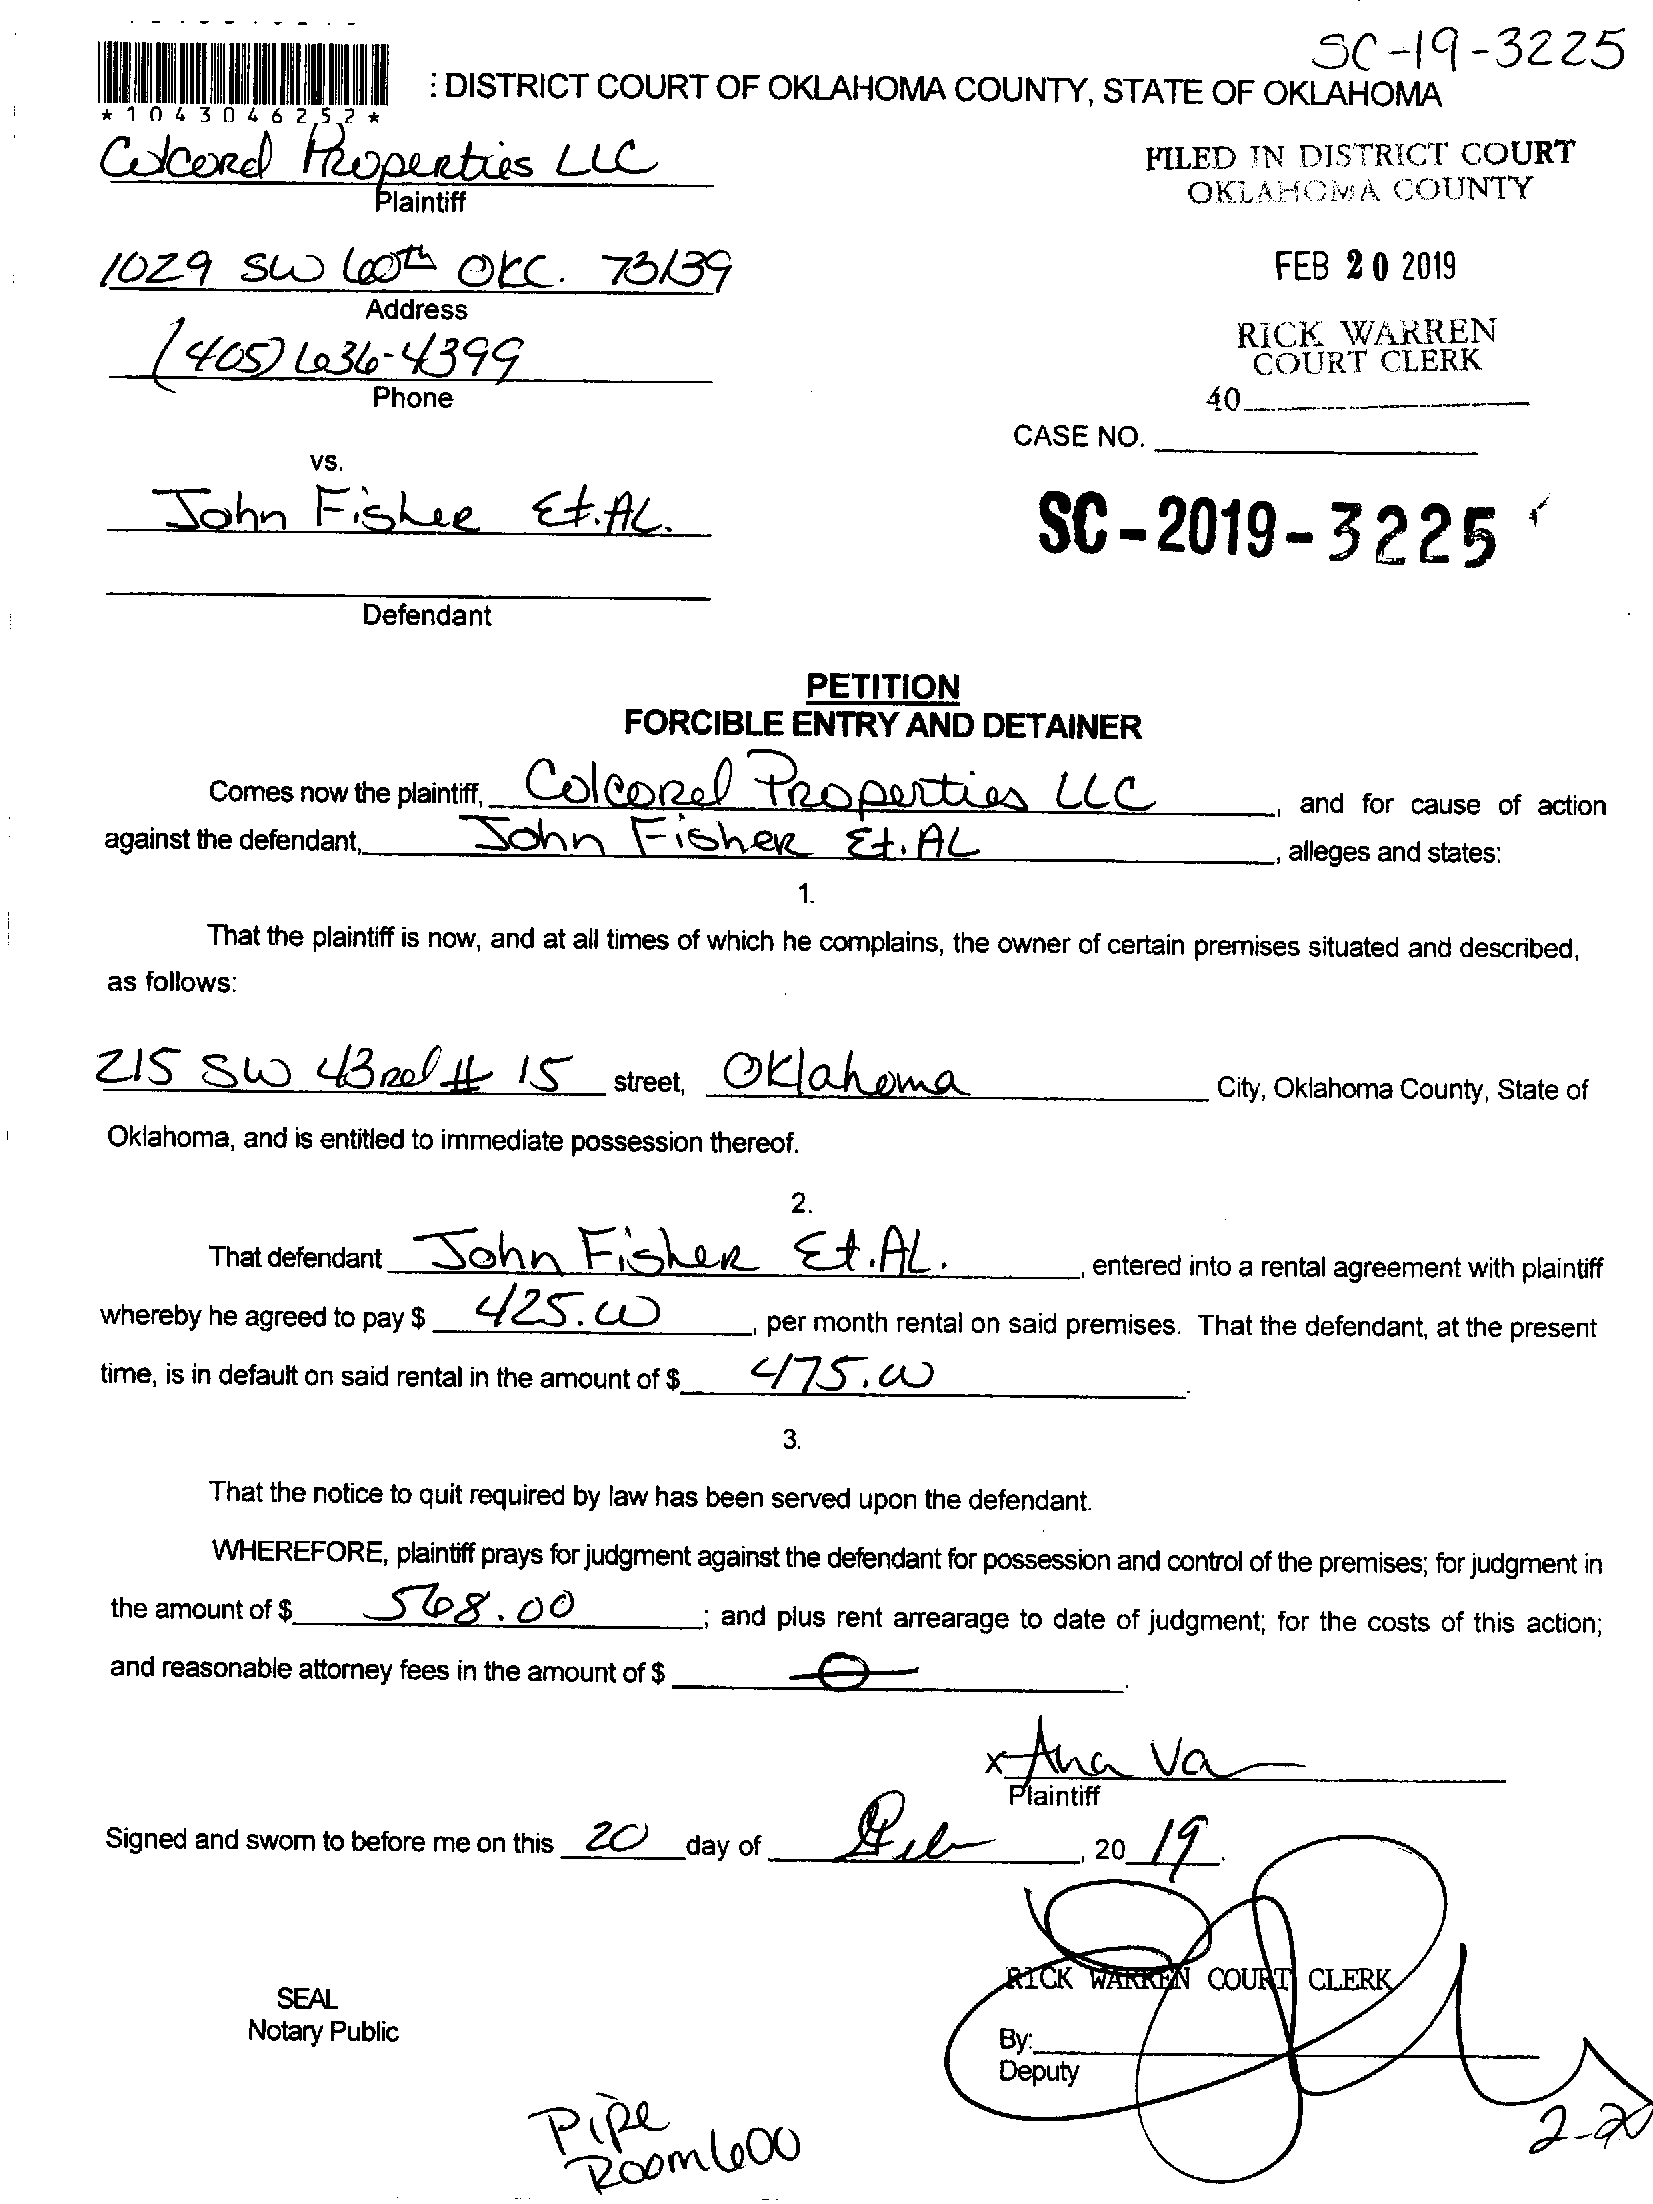 SC-19-3225
: DISTRICT COURT OF OKLAHOMA COUNTY, STATE OF OKLAHOMA
*1043046252*
Colcord Properties LLC
Plaintiff
FILED IN DISTRICT COURT
OKLAHOMA COUNTY
1029 SW 60th OKC. 73139
Address
FEB 20 2019
(405) 636-4399
Phone
RICK WARREN
COURT CLERK
40
CASE NO.
vs.
John Fisher Et.AL.
SC-2019-3225
Defendant
PETITION
FORCIBLE ENTRY AND DETAINER
Comes now the plaintiff, Colcord Properties LLC, and for cause of action
against the defendant, John Fisher Et.AL, alleges and states:
1.
That the plaintiff is now, and at all times of which he complains, the owner of certain premises situated and described,
as follows:
215 SW 43rd # 15 street, Oklahoma City, Oklahoma County, State of
Oklahoma, and is entitled to immediate possession thereof.
2.
That defendant John Fisher Et.AL., entered into a rental agreement with plaintiff
whereby he agreed to pay $ 425.00, per month rental on said premises. That the defendant, at the present
time, is in default on said rental in the amount of $ 475.00.
3.
That the notice to quit required by law has been served upon the defendant.
WHEREFORE, plaintiff prays for judgment against the defendant for possession and control of the premises; for judgment in
the amount of $ 568.00; and plus rent arrearage to date of judgment; for the costs of this action;
and reasonable attorney fees in the amount of $ 0.
x Ana Va
Plaintiff
Signed and sworn to before me on this 20 day of Feb, 2019.
RICK WARREN COURT CLERK
SEAL
Notary Public
By:
Deputy
2-20
Pipe
Room 600